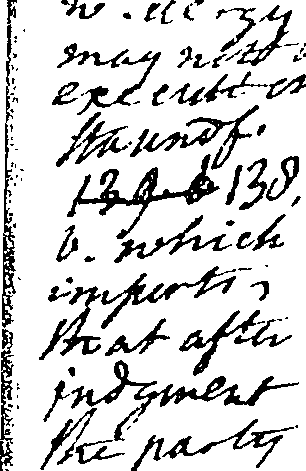 may not
execut
Staundf.
139. b 138,
b. which
imports,
that after
judgment
the party